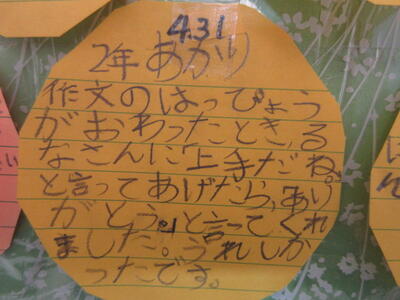 4.31
2年 あかり
作文のはっぴょう
がおわったとき、る
なさんに「上手だね。」
と言ってあげたら、「あり
がとう。」と言ってくれ
ました。うれしか
ったです。